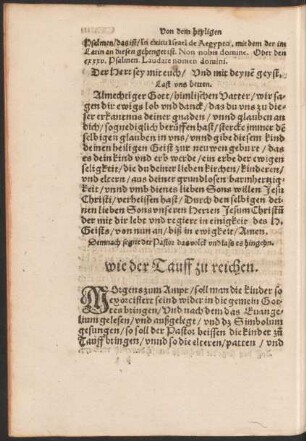 Von dem heyligen
Psalmen/das ist/In exitu Israel de Aegypto, mit dem der im
Latin an diesen gehengct ist. Non nobis domine. Oder den
cxxxv. Psalmen. Laudate nomen domini.
Der Herr sey mit euch/ Und mit deynē geyst.
Last uns betten.
Almechtiger Got/himlischen Vatter/wir sa-
gen dir ewigs lob vnd danck/das du vns zu die-
ser erkantnus deiner gnaden/vnnd glauben an
dich/sognediglich berüffen hast/stercke immer dē
selbigen glauben in vns/vnnd gibe disem kinde
denen heiligen Geist zur newen geburt/das
es dein kind vnd erb werde/ein erbe der ewigen
seligkeit/die du deiner lieben kirchen/kinderen/
vnd eltern/aus deiner grundlosen barmhertzig-
keit/vnnd vmb dienes lieben Sons willen Jesu
Christi/verheissen hast/Durch den selbigen dei-
nen lieben Sons vnsern Herzen Jesum Christū
der mit dir lebt vnd regiere in einigkeit des H.
Geists/von nun an/biß in ewigkeit/Amen.
Demnach segne der Pastor das volck vnd laß es hingehn.
wie der Tauff zu reichen.
MOrgens zum Ampt/soll man die kinder so
exorcistere seind wider in die gemein Got-
tes bringen/Vnd nach dem das Euange-
lium gelesen/vnd außgelegt/vnd dz Simbolum
gesungen/so soll der Pastor heissen die kinder zū
Tauff bringen/vnnd so die elteren/patten/vnd